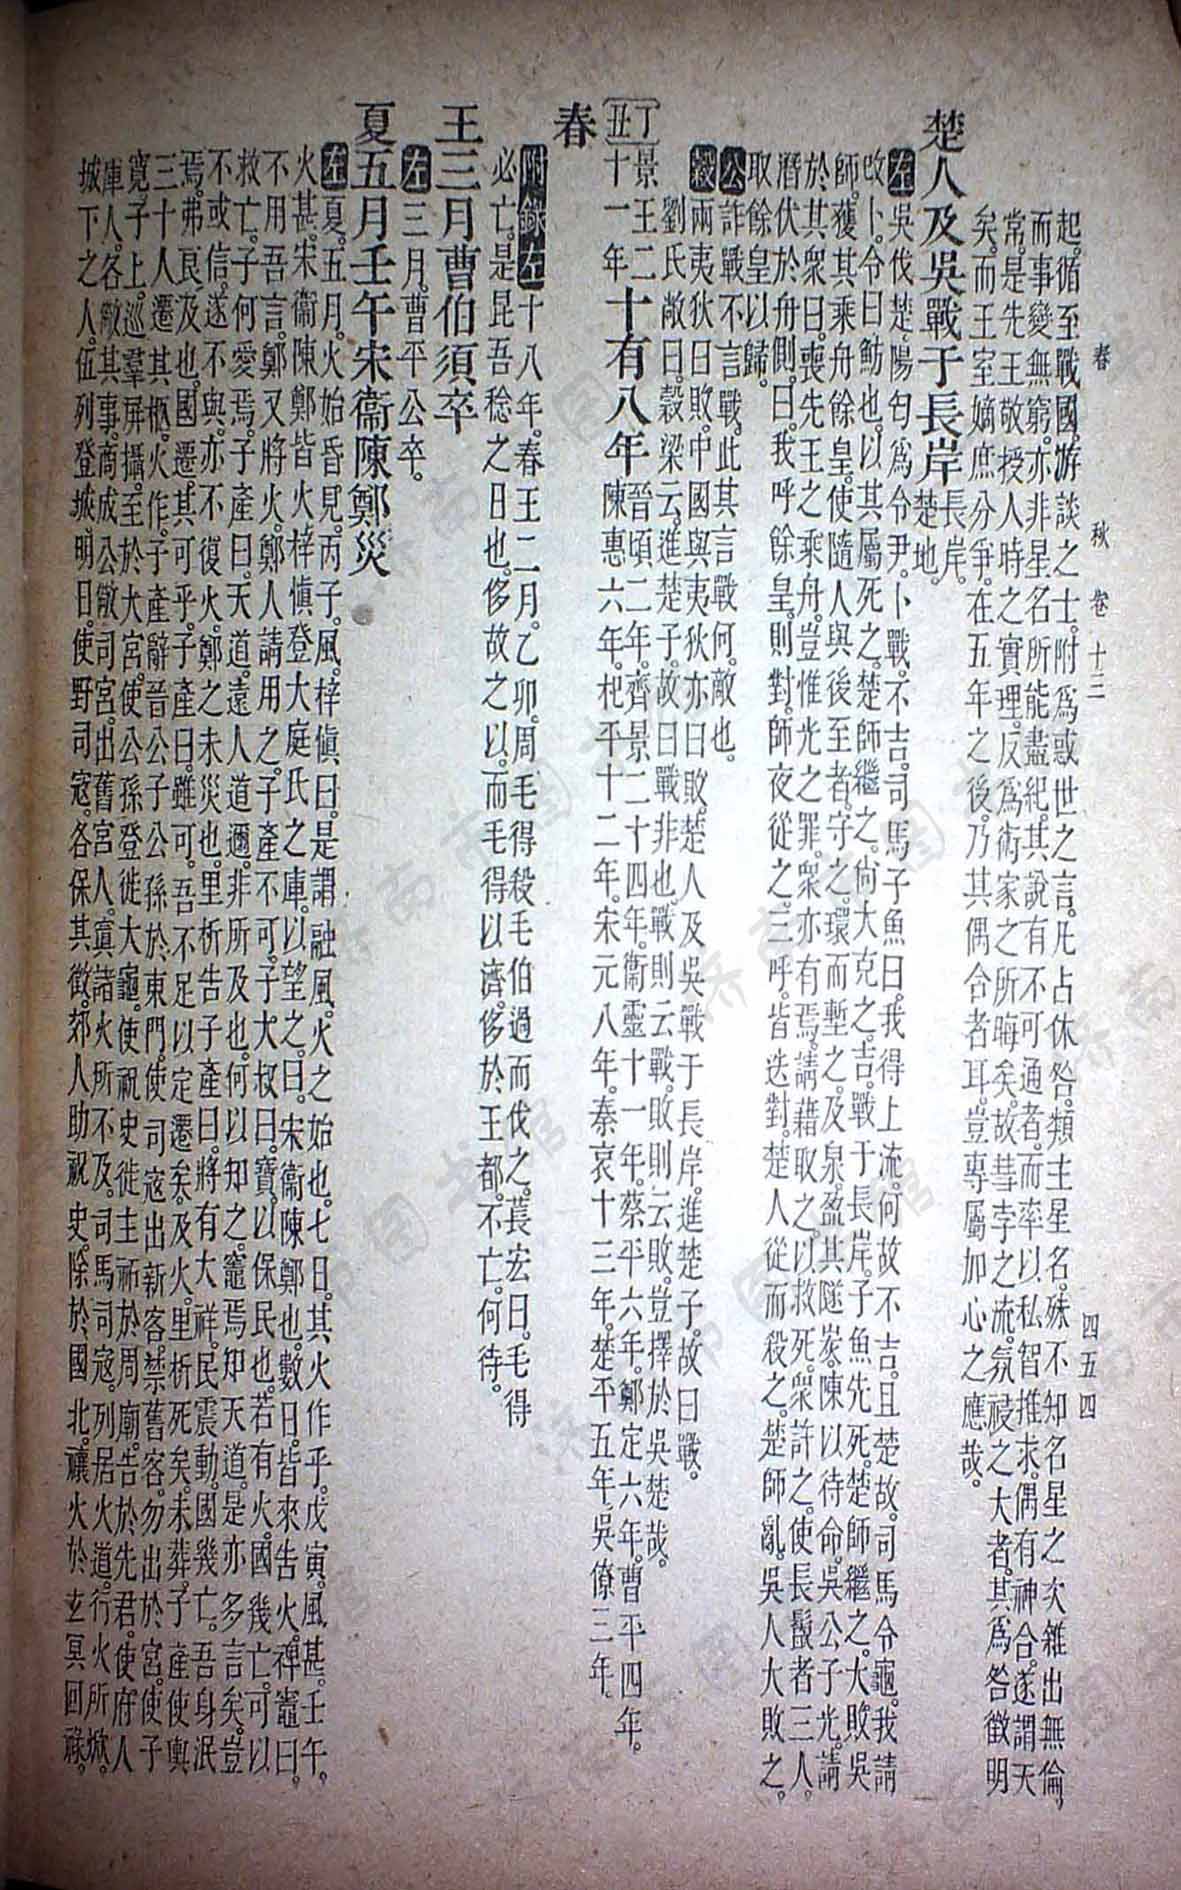 春　秋　卷十三　四五四
起。循至戰國游談之士。附爲惑世之言。凡占休咎。類主星名。殊不知名星之次。雜出無倫。
而事變無窮。亦非星名所能盡紀。其說有不可通者。而率以私智推求。偶有神合。遂謂天
常。是先王敬授人時之實理。反爲術家之所晦矣。故彗孛之流。氛祲之大者。其爲咎徵明
矣。而王室嫡庶分爭。在五年之後。乃其偶合者耳。豈專屬加心之應哉。
楚人及吳戰于長岸長岸。楚地。
左吳伐楚。陽匄爲令尹。卜戰。不吉。司馬子魚曰。我得上流。何故不吉。且楚故。司馬令龜。我請
改卜。令曰。魴也。以其屬死之。楚師繼之。尙大克之。吉。戰于長岸。子魚先死。楚師繼之。大敗吳
師。獲其乘舟餘皇。使隨人與後至者。守之。環而塹之。及泉。盈其隧炭。陳以待命。吳公子光。請
於其衆曰。喪先王之乘舟。豈惟光之罪。衆亦有焉。請藉取之。以救死。衆許之。使長鬣者三人。
潛伏於舟側。曰。我呼餘皇。則對。師夜從之。三呼。皆迭對。楚人從而殺之。楚師亂。吳人大敗之。
取餘皇以歸。
公詐戰不言戰。此其言戰何。敵也。
穀兩夷狄曰敗。中國與夷狄亦曰敗。楚人及吳戰于長岸。進楚子。故曰戰。
劉氏敞曰。穀梁云。進楚子。故曰戰。非也。戰則云戰。敗則云敗。豈擇於吳楚哉。
丁丑景王二十一年十有八年晉頃二年。齊景二十四年。衞靈十一年。蔡平六年。鄭定六年。曹平四年。陳惠六年。杞平十二年。宋元八年。秦哀十三年。楚平五年。吳僚三年。
春
附錄左十八年。春王二月。乙卯。周毛得殺毛伯過而伐之。萇宏曰。毛得
必亡。是昆吾稔之日也。侈故之以。而毛得以濟。侈於王都。不亡。何待。
王三月曹伯須卒
左三月。曹平公卒。
夏五月壬午宋衞陳鄭災
左夏。五月。火始昏見。丙子。風。梓愼曰。是謂融風。火之始也。七日。其火作乎。戊寅。風甚。壬午。
火甚。宋衞陳鄭皆火。梓愼登大庭氏之庫。以望之。曰。宋衞陳鄭也。數日。皆來告火。裨竈曰。
不用吾言。鄭又將火。鄭人請用之。子產不可。子大叔曰。寶。以保民也。若有火。國幾亡。可以
救亡。子何愛焉。子產曰。天道遠。人道邇。非所及也。何以知之。竈焉知天道。是亦多言矣。豈
不或信。遂不與。亦不復火。鄭之未災也。里析告子產曰。將有大祥。民震動。國幾亡。吾身泯
焉。弗良及也。國遷。其可乎。子產曰。雖可。吾不足以定遷矣。及火。里析死矣。未葬。子產使輿
三十人。遷其柩。火作。子產辭晉公子公孫於東門。使司寇出新客。禁舊客。勿出於宮。使子
寬子上巡羣屏攝。至於大宮。使公孫登徙大龜。使祝史徙主祏於周廟。告於先君。使府人
庫人。各儆其事。商成公儆司宮。出舊宮人。寘諸火所不及。司馬司寇。列居火道。行火所焮。
城下之人。伍列登城。明日。使野司寇。各保其徵。郊人助祝史。除於國北。禳火於玄冥回祿。